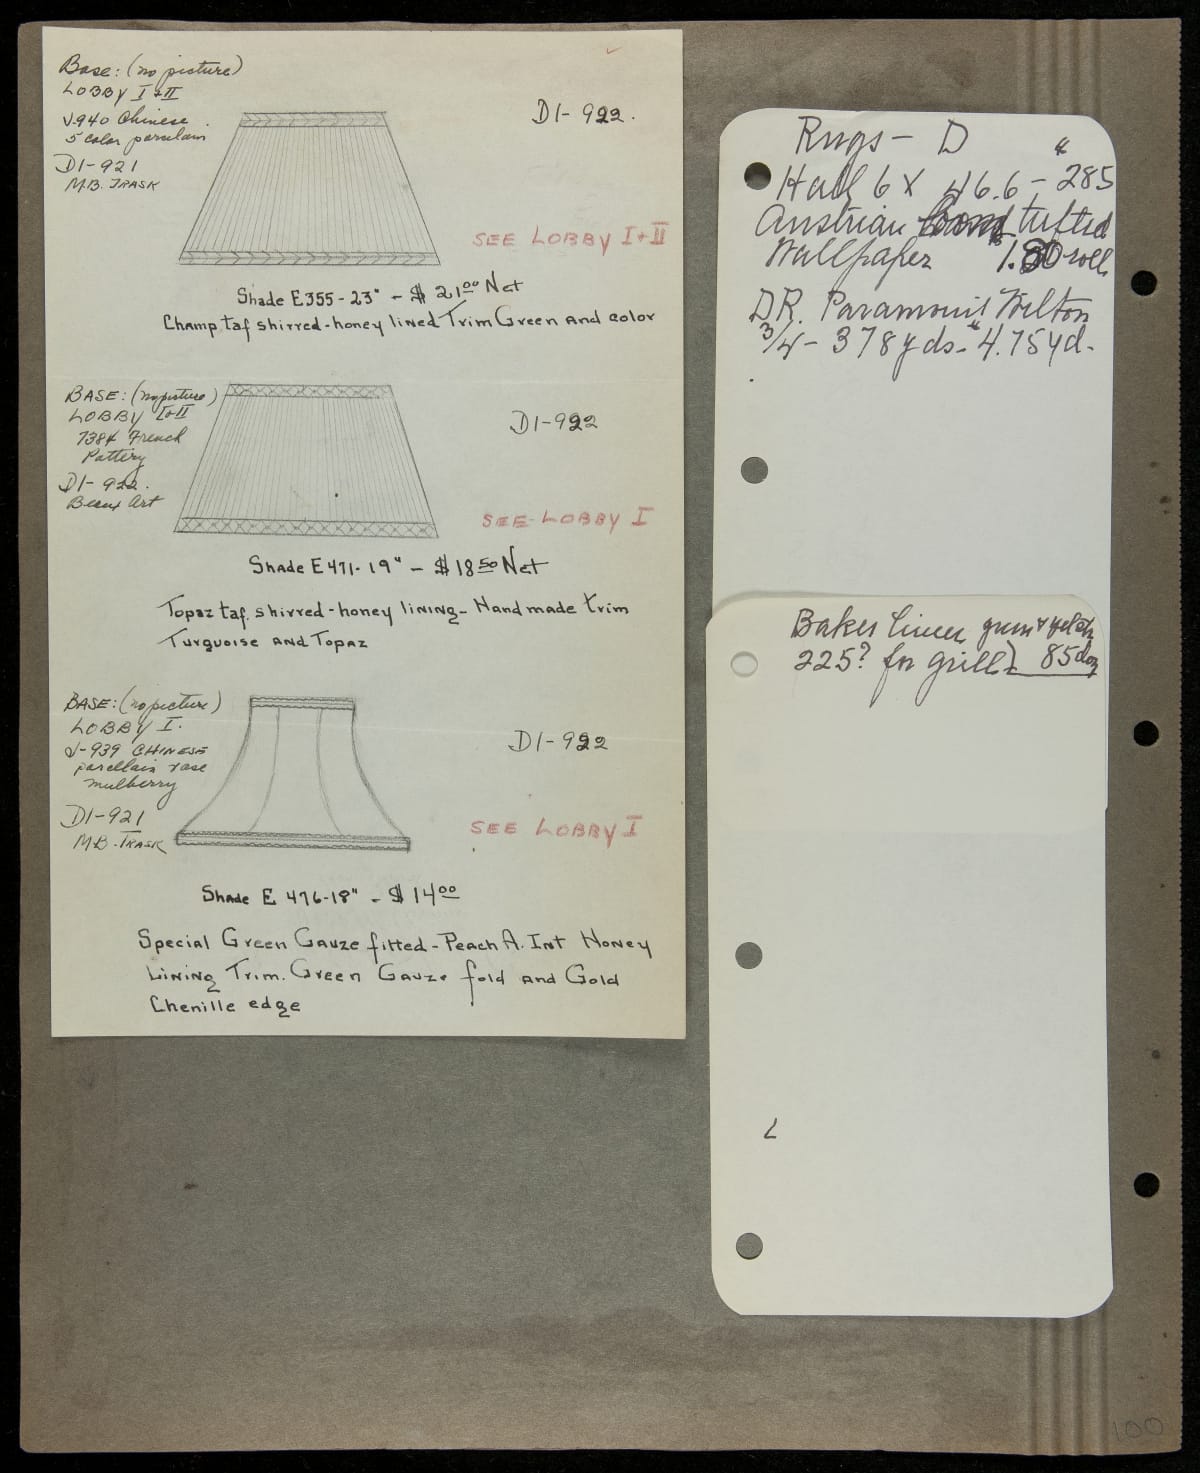 Base: (no picture)
LOBBY I + II
J.940 Chinese
5 color porcelain
D1-921
M.B. TRASK
D1-922.
SEE LOBBY I + II
Shade E355-23" - $21.00 Net
Champ, taf shirred-honey lined Trim Green and color
BASE: (no picture)
LOBBY I+II
7384 French
Pottery
D1-922.
Beaux Art
D1-922
SEE LOBBY I
Shade E471-19" - $18.50 Net
Topaz taf. shirred-honey lining- Hand made trim
Turquoise and Topaz
BASE: (no picture)
LOBBY I.
J-939 CHINESE
porcellain vase
mulberry
D1-921
M.B. TRASK
D1-922
SEE LOBBY I
Shade E 476-18" - $14.00
Special Green Gauze fitted-Peach A. Int Honey
Lining Trim. Green Gauze fold and Gold
Chenille edge
Rugs - D
Hall 6 X 46.6 - 285
Austrian tufted
Wallpaper 1.80 roll
DR. Paramount Wilton
3/4 - 378 yds - 4.75 yd.
Baker Linen green +
225? for grill) 85 doz
100